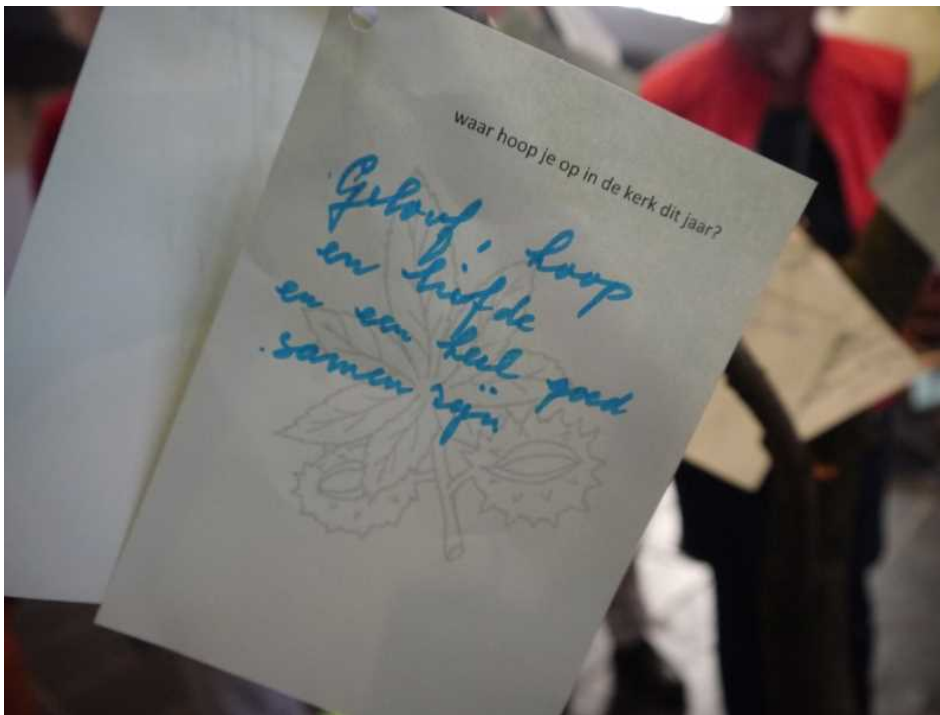 waar hoop je op in de kerk dit jaar?
Geloof, hoop
en liefde
en een heel goed
samen zijn